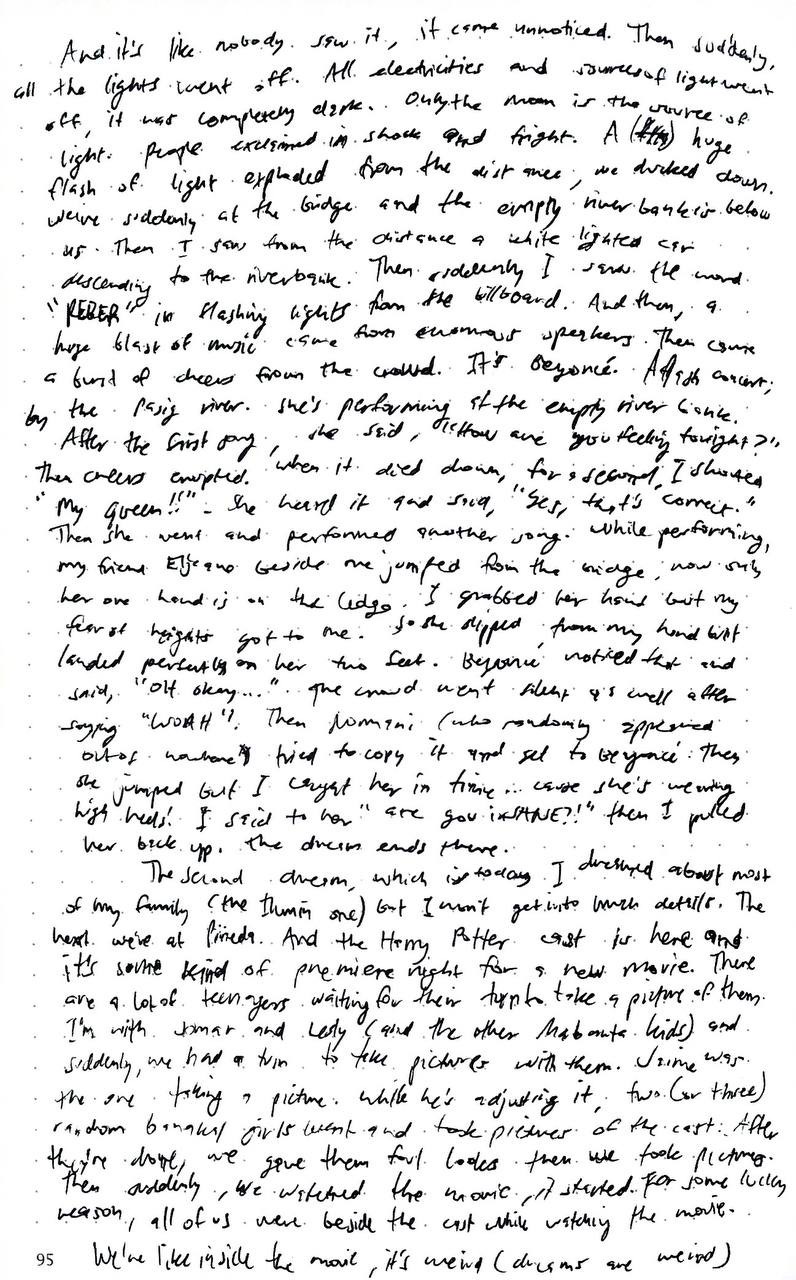 And it's like nobody saw it, it came unnoticed. Then suddenly,
all the lights went off. All electricities and sources of light went
off, it was completely dark. Only the moon is the source of
light. People exclaimed in shock and fright. A huge
flash of light exploded from the distance, we ducked down.
We're suddenly at the bridge and the empty river bank is below
us. Then I saw from the distance a white lighted car
descending to the riverbank. Then suddenly I saw the word
in flashing lights from the billboard. And then, a
huge blast of music came from enormous speakers. Then came
a burst of cheers from the crowd. It's Beyoncé. A flash concert;
by the Pasig river. She's performing at the empty river bank.
After the first song, she said, "How are you feeling tonight?"
Then cheers erupted. When it died down, for a second, I shouted
"My queen!!" - She heard it and said, "Yes, that's correct."
Then she went and performed another song. While performing,
my friend beside me jumped from the bridge, now only
her one hand is on the ledge. I grabbed her hand but my
fear of heights got to me. So she slipped from my hand but
landed perfectly on her two feet. Beyoncé noticed that and
said, "Oh okay...". The crowd went silent as well after
saying "WOAH". Then Normani (who randomly appeared
out of nowhere) tried to copy it and get to Beyoncé. Then
she jumped but I caught her in time... cause she's wearing
high heels! I said to her "are you inSANE?!" then I pulled
her back up. The dream ends there.
The second dream, which is today I dreamed about most
of my family (the Ilumin one) but I won't get into much details. The
next we're at Pineda. And the Harry Potter cast is here and
it's some kind of premiere night for a new movie. There
are a lot of teenagers waiting for their turn to take a picture of them.
I'm with Jomar and Lesly (and the other Mabanta kids) and
suddenly, we had a turn to take pictures with them. Jaime was
the one taking a picture. While he's adjusting it, two (or three)
random girls went and took pictures of the cast. After
they're done, we gave them foul looks then we took pictures.
Then suddenly, we watched the movie, it started. For some lucky
reason, all of us were beside the cast while watching the movie.
We're like inside the movie, it's weird (dreams are weird)
95